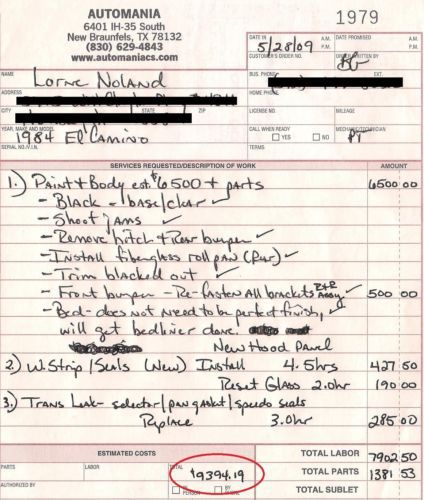 AUTOMANIA
6401 IH-35 South
New Braunfels, TX 78132
(830) 629-4843
www.automaniacs.com
1979
DATE IN A.M. P.M. DATE PROMISED A.M. P.M.
5/28/09
CUSTOMER'S ORDER NO. WRITTEN BY
NAME
Lorne Noland
BUS. PHONE EXT.
ADDRESS
CITY STATE ZIP
LICENSE NO. MILEAGE
YEAR, MAKE AND MODEL
1984 El Camino
CALL WHEN READY YES NO
MECHANIC/TECHNICIAN
PT
SERIAL NO./V.I.N.
TERMS
SERVICES REQUESTED/DESCRIPTION OF WORK AMOUNT
1.) Paint + Body est. $6500 + parts 6500 00
- Black - base/clear ✓
- Shoot jams ✓
- Remove hitch + Rear bumper ✓
- Install fiberglass roll pan (Rear) ✓
- Trim blacked out ✓
- Front bumper - Re-fasten All brackets R+R Assy ✓ 500 00
- Bed - does not need to be perfect finish, ✓
will get bedliner done.
New Hood Panel
2.) W. Strip/Seals (New) Install 4.5hrs 427 50
Reset Glass 2.0hr 190 00
3.) Trans Leak - selector/pan gasket/speedo seals
Replace 3.0hr 285 00
ESTIMATED COSTS TOTAL LABOR 7902 50
PARTS LABOR TOTAL
$9394.19
TOTAL PARTS 1381 53
AUTHORIZED BY IN PERSON BY PHONE
TOTAL SUBLET